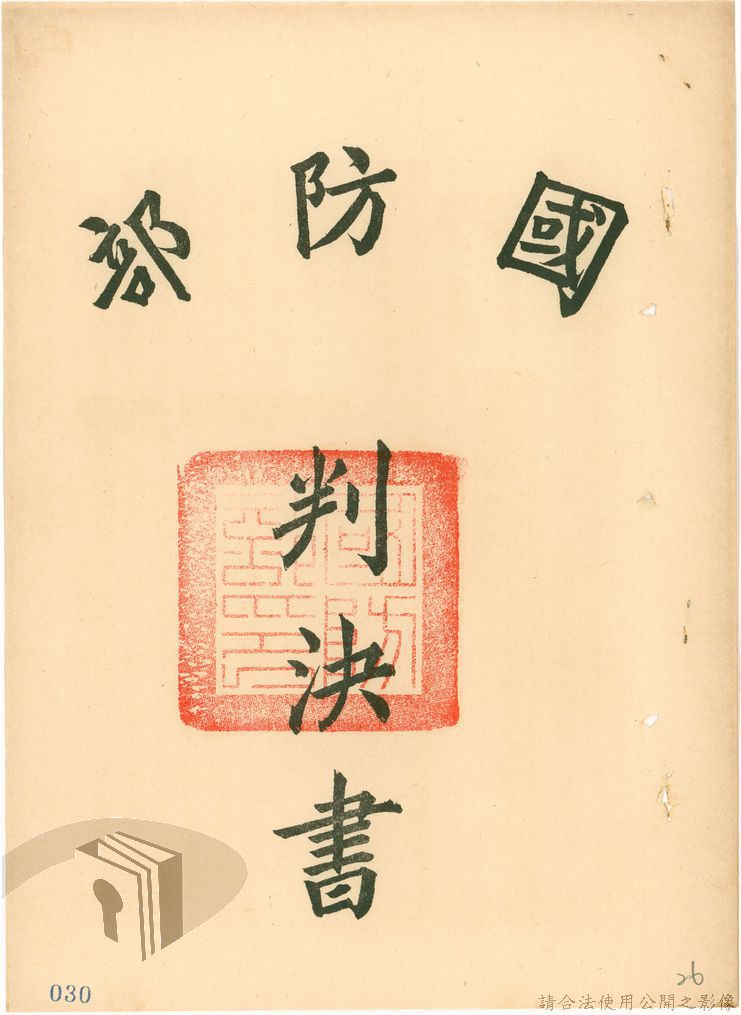 國防部
判決書
030
26
請合法使用公開之影像